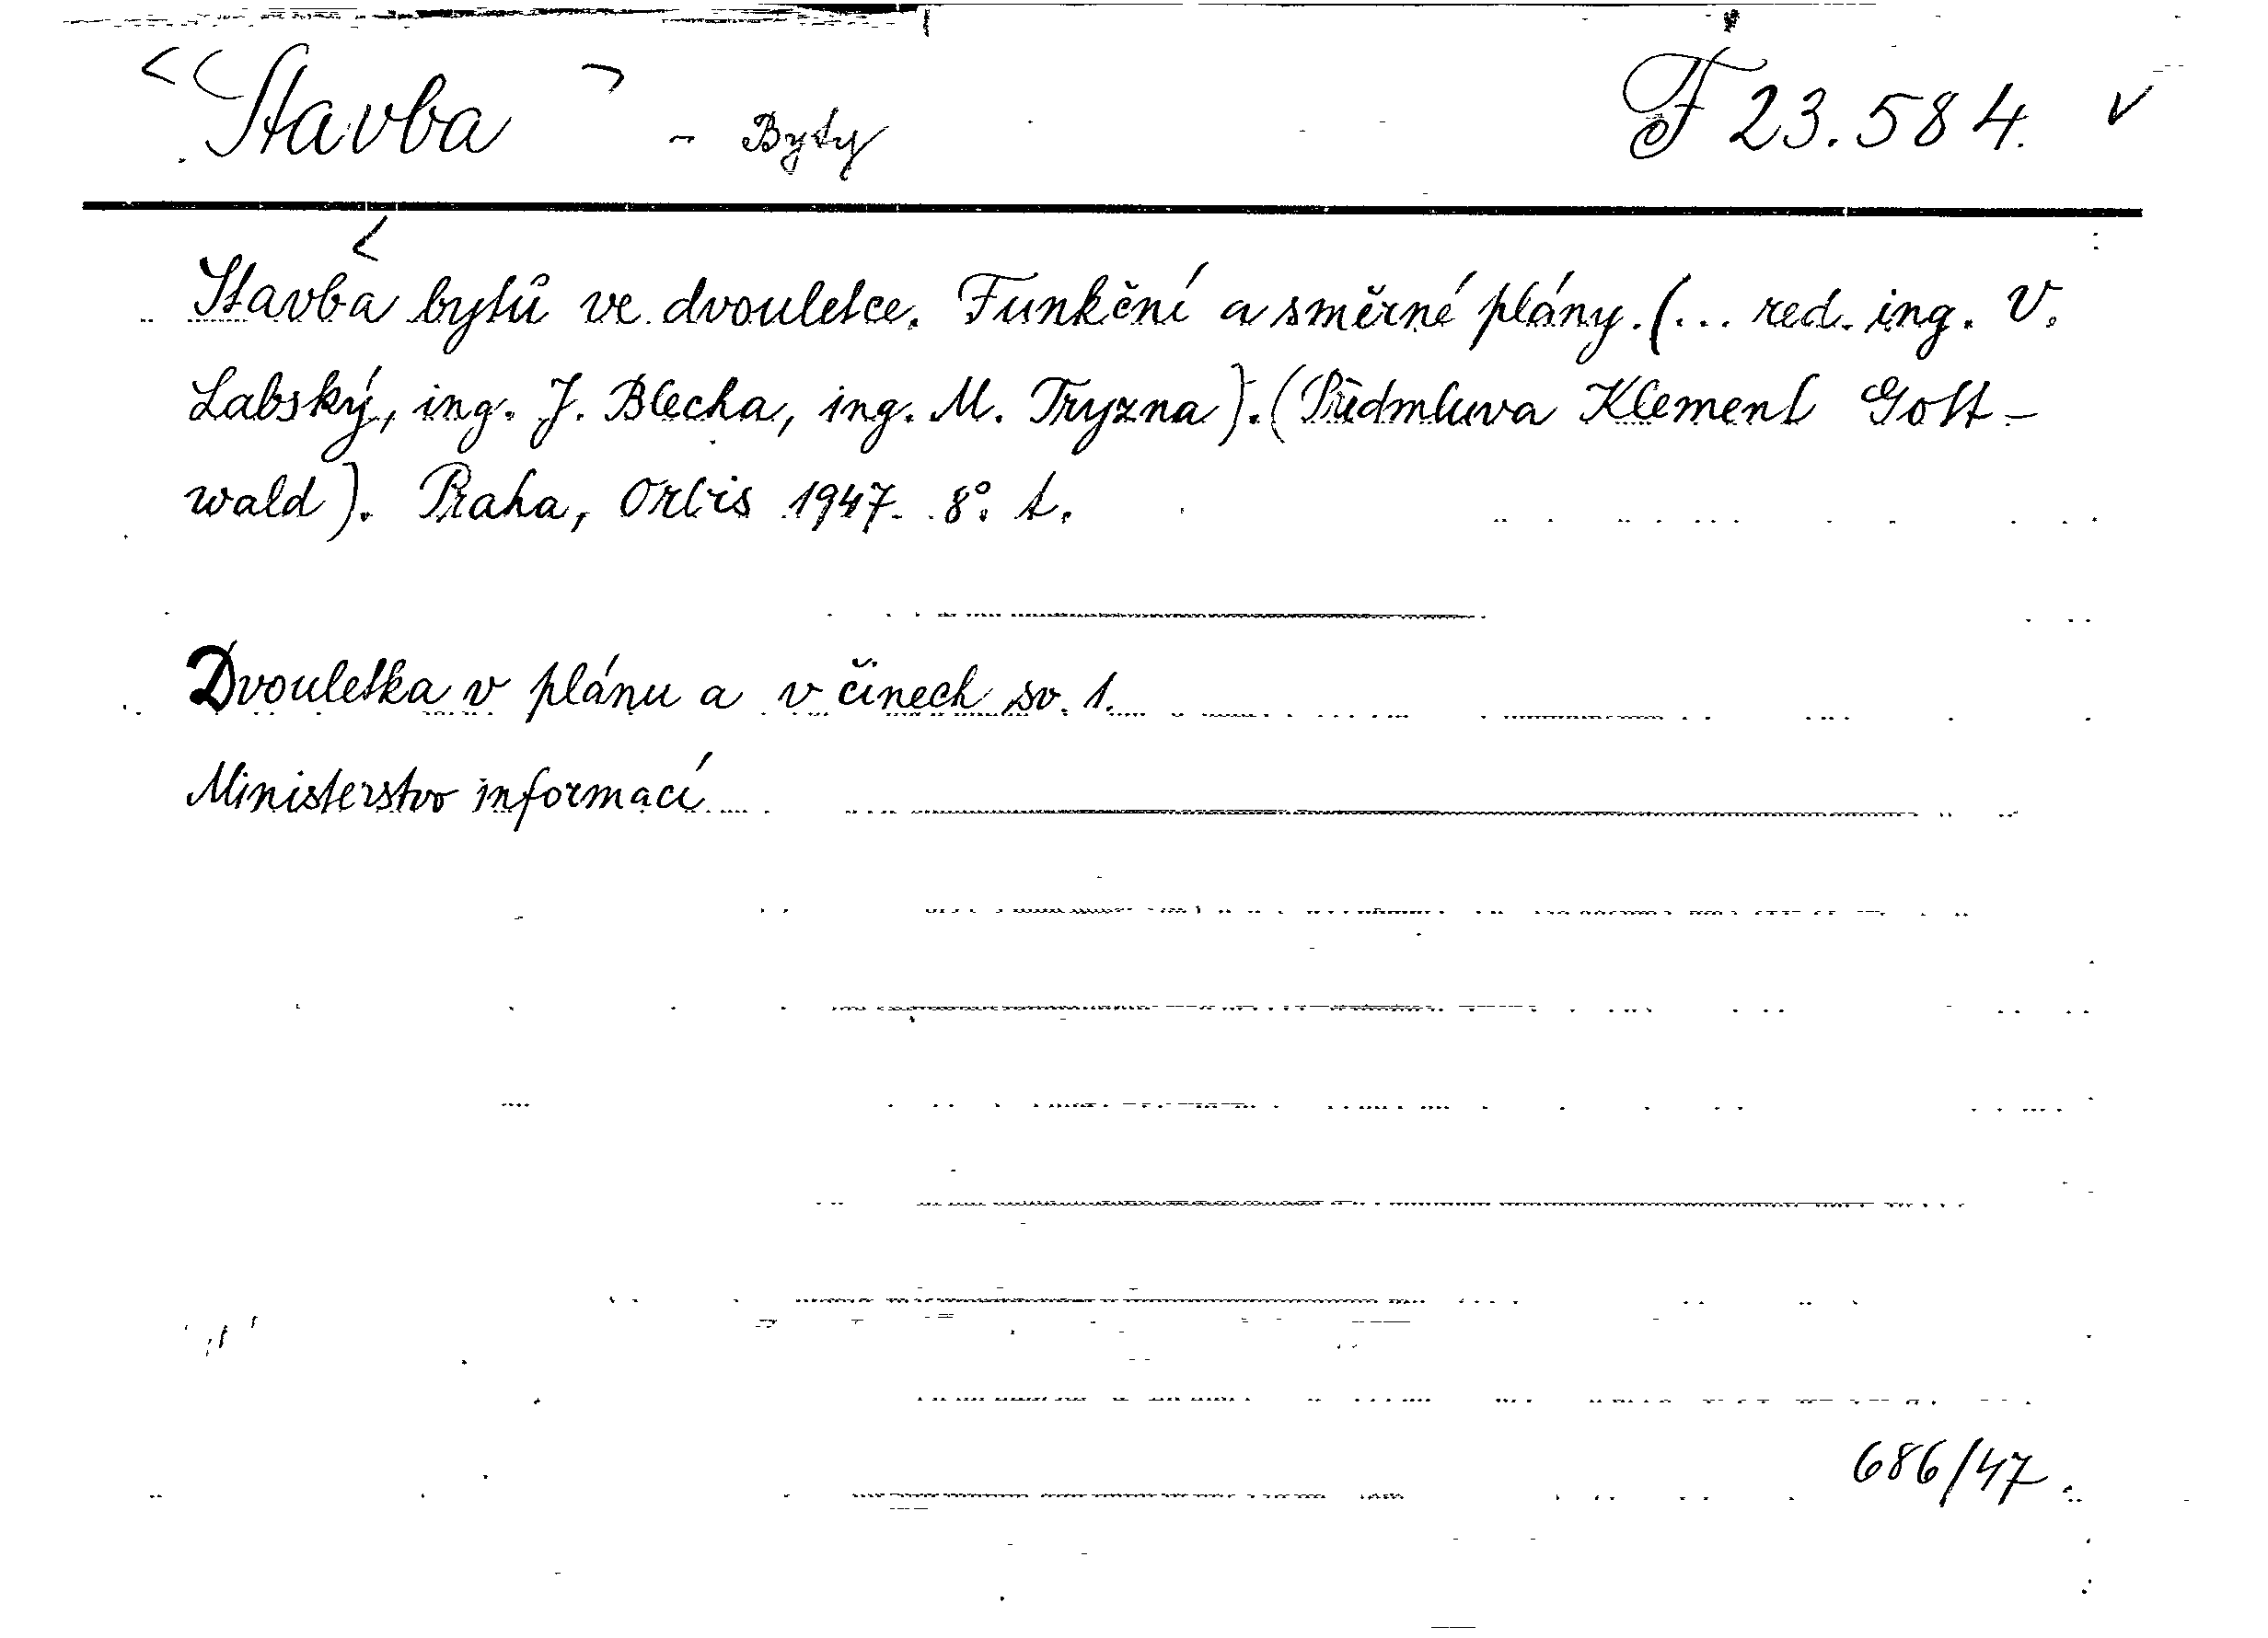 <Stavba> - Byty F 23.584. v
Stavba bytů ve dvouletce. Funkční a směrné plány. (... red. ing. V.
Labský, ing. J. Blecha, ing. M. Tryzna). (Předmluva Klement Gott-
wald). Praha, Orbis 1947. 8°. t.
Dvouletka v plánu a v činech sv. 1.
Ministerstvo informací
686/47.